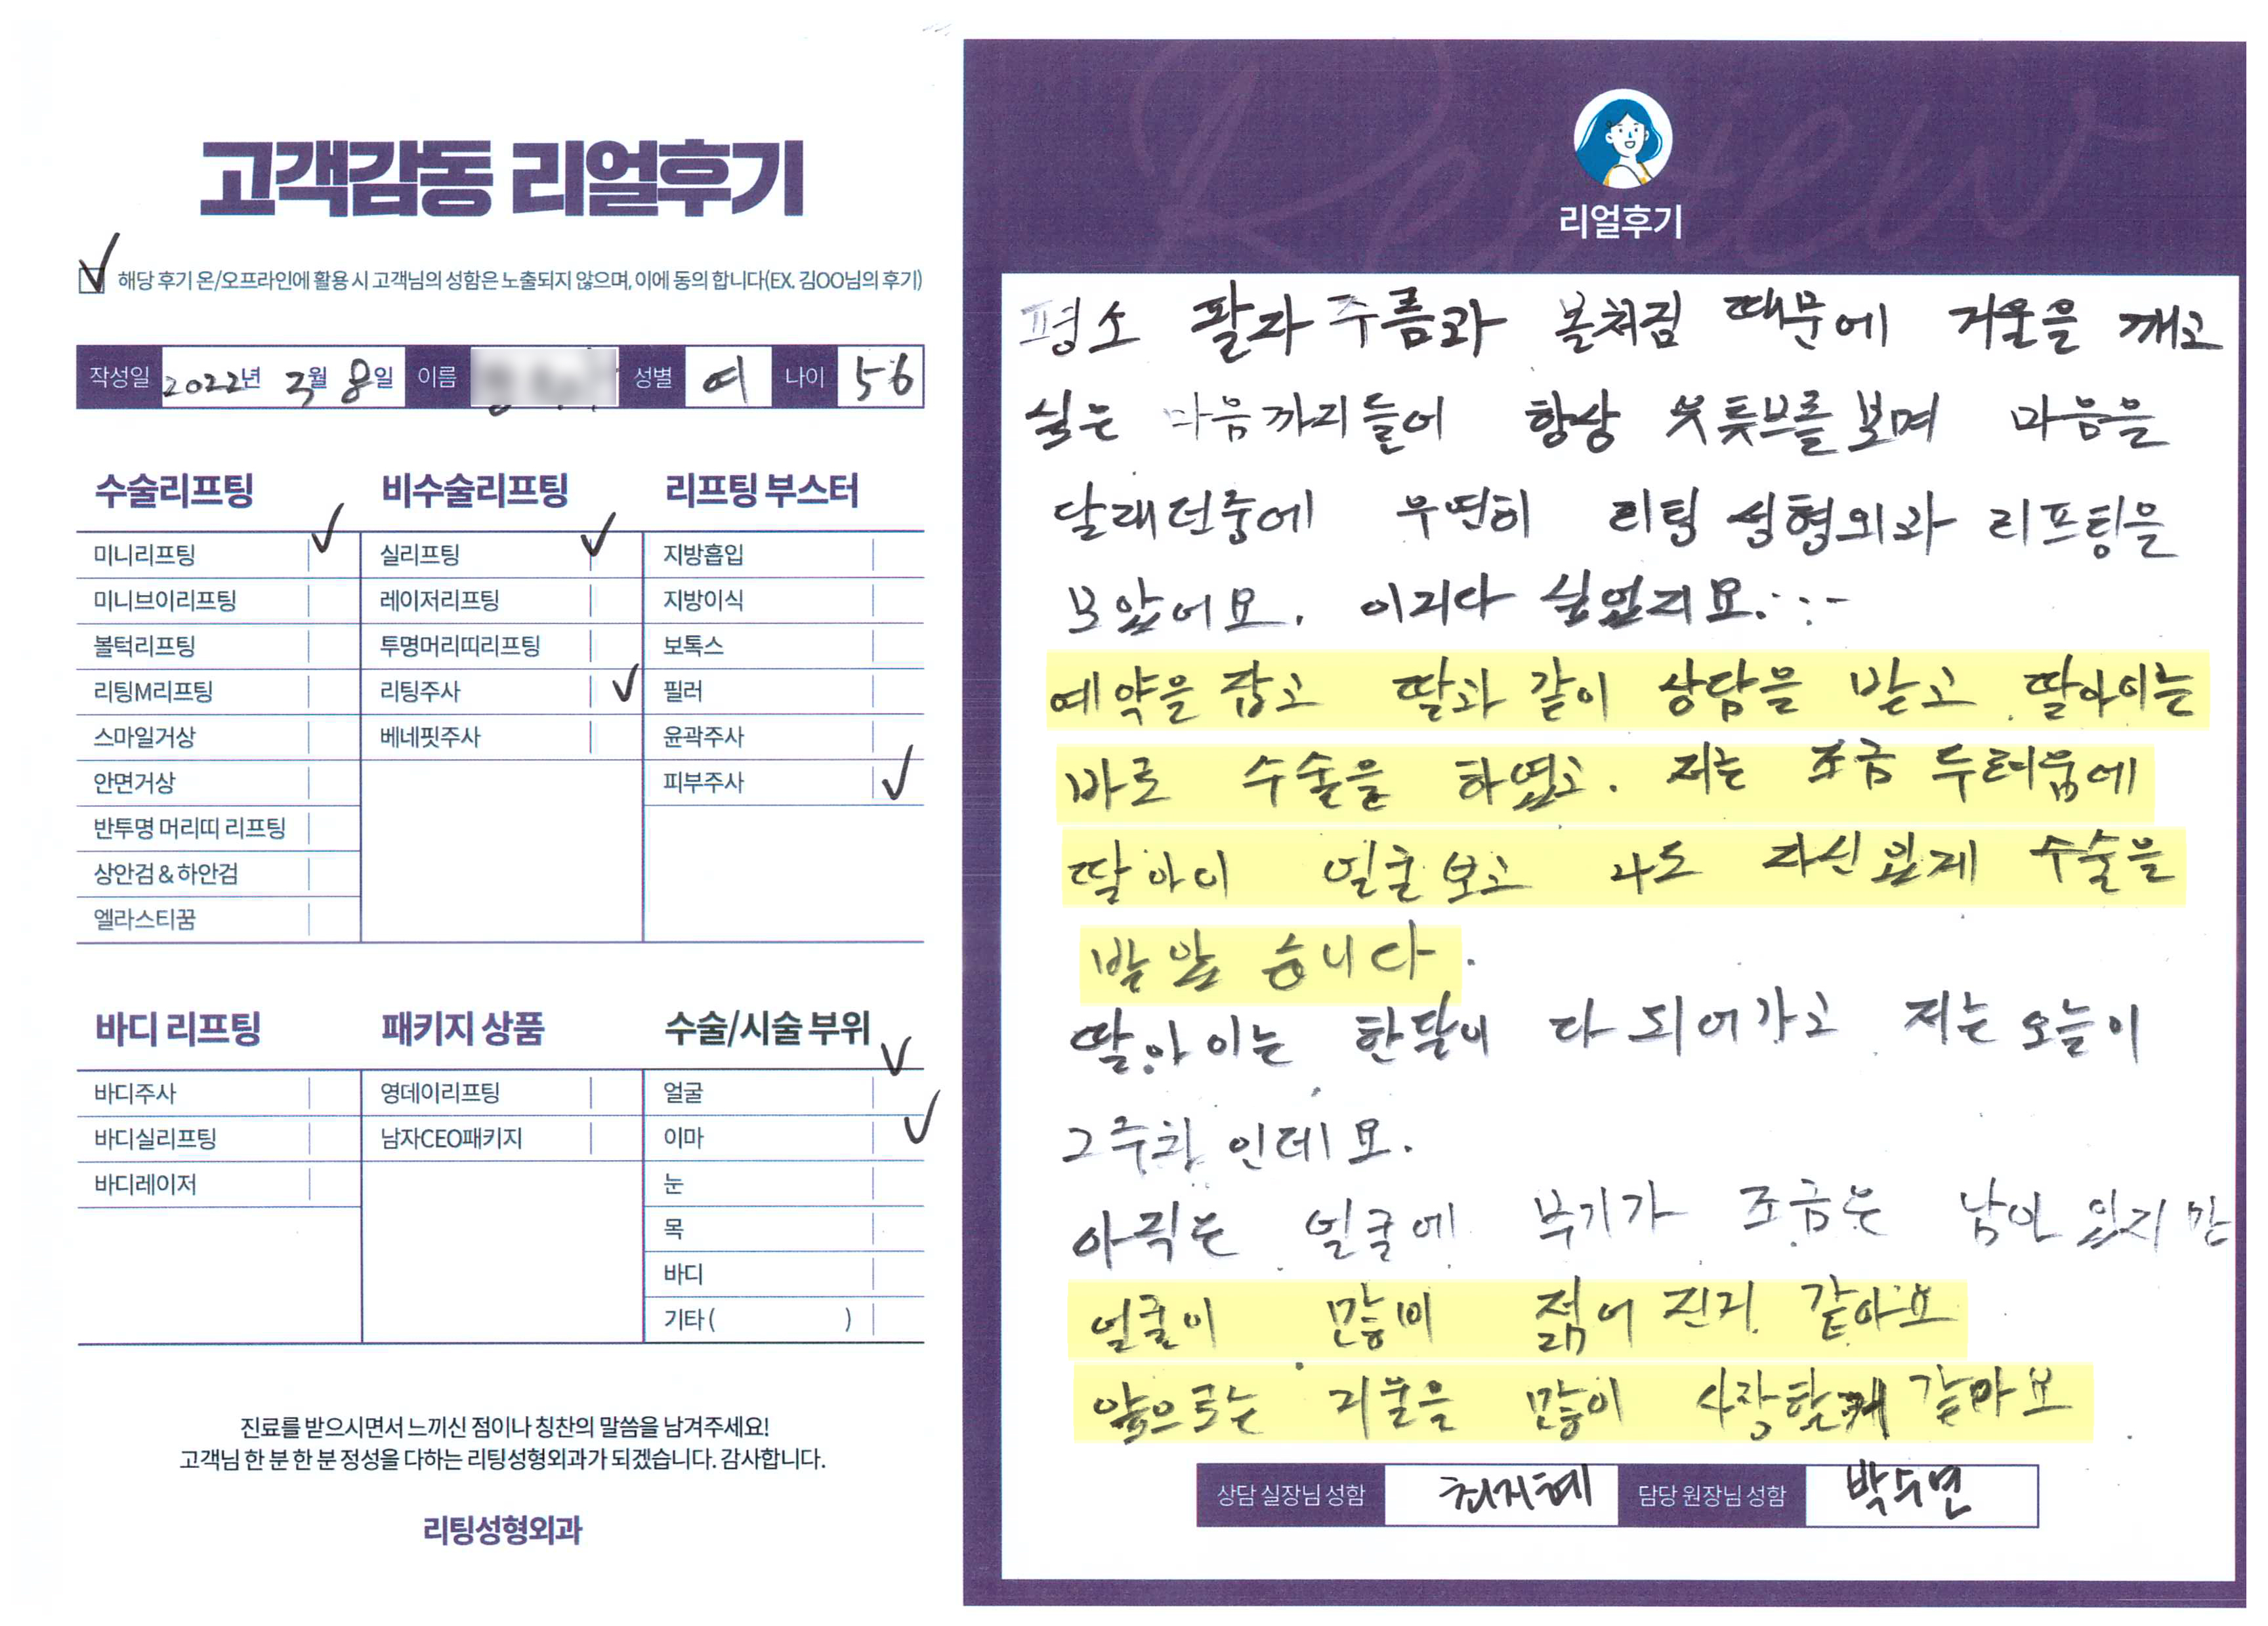 고객감동 리얼후기
해당 후기 온/오프라인에 활용 시 고객님의 성함은 노출되지 않으며, 이에 동의 합니다(EX. 김OO님의 후기)
작성일 2022년 3월 8일 이름 성별 여 나이 56
수술리프팅 비수술리프팅 리프팅 부스터
미니리프팅 실리프팅 지방흡입
미니브이리프팅 레이저리프팅 지방이식
볼턱리프팅 투명머리띠리프팅 보톡스
리팅M리프팅 리팅주사 필러
스마일거상 베네핏주사 윤곽주사
안면거상 피부주사
반투명 머리띠 리프팅
상안검 & 하안검
엘라스티꿈
바디 리프팅 패키지 상품 수술/시술 부위
바디주사 영데이리프팅 얼굴
바디실리프팅 남자CEO패키지 이마
바디레이저 눈
목
바디
기타 ( )
진료를 받으시면서 느끼신 점이나 칭찬의 말씀을 남겨주세요!
고객님 한 분 한 분 정성을 다하는 리팅성형외과가 되겠습니다. 감사합니다.
리팅성형외과
Review
리얼후기
평소 팔자 주름과 볼처짐 때문에 거울을 깨고
싶은 마음까지들어 항상 유튜브를 보며 마음을
달래던중에 우연히 리팅 성형외과 리프팅을
보았어요. 이거다 싶었지요....
예약을 잡고 딸과 같이 상담을 받고 딸아이는
바로 수술을 하였고. 저는 조금 두려움에
딸아이 얼굴보고 나도 자신있게 수술을
받았습니다.
딸아이는 한달이 다 되어가고 저는 오늘이
2주차 인데요.
아직은 얼굴에 부기가 조금은 남아 있지만
얼굴이 많이 젊어 진거 같아요
앞으로는 거울을 많이 사랑할께 같아요
상담 실장님 성함 최지혜 담당 원장님 성함